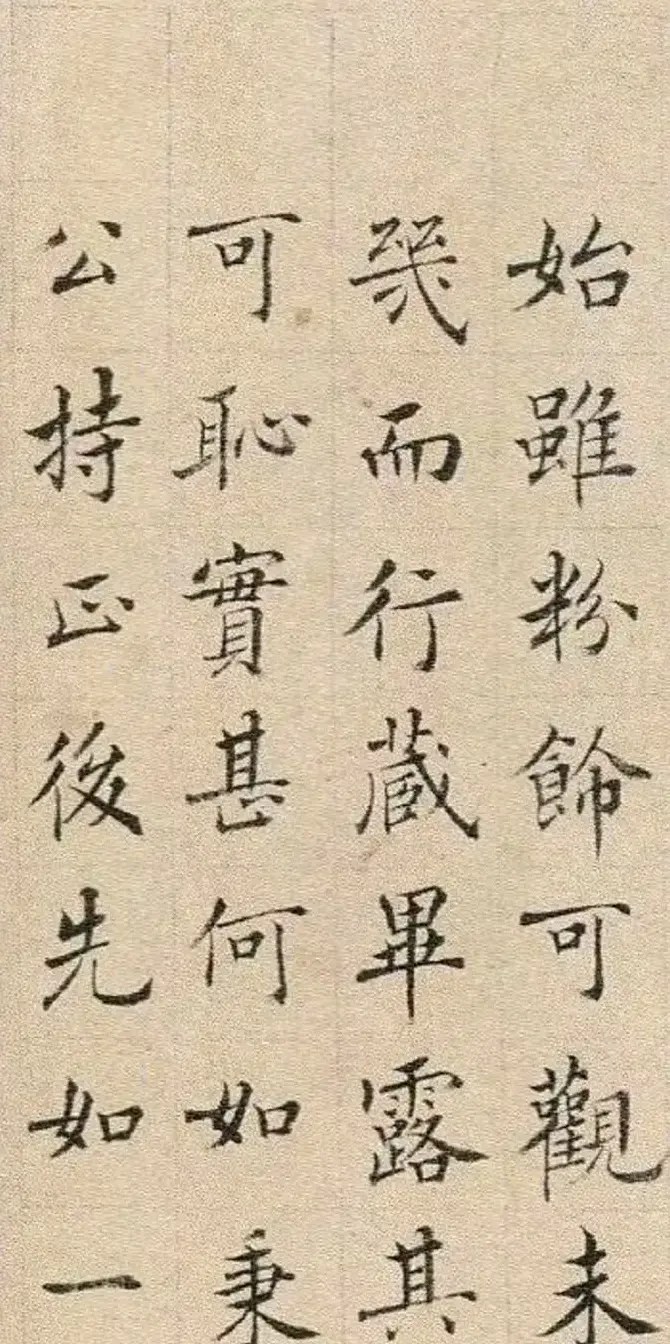 始雖粉飾可觀未
幾而行蔵畢露其
可恥實甚何如秉
公持正後先如一